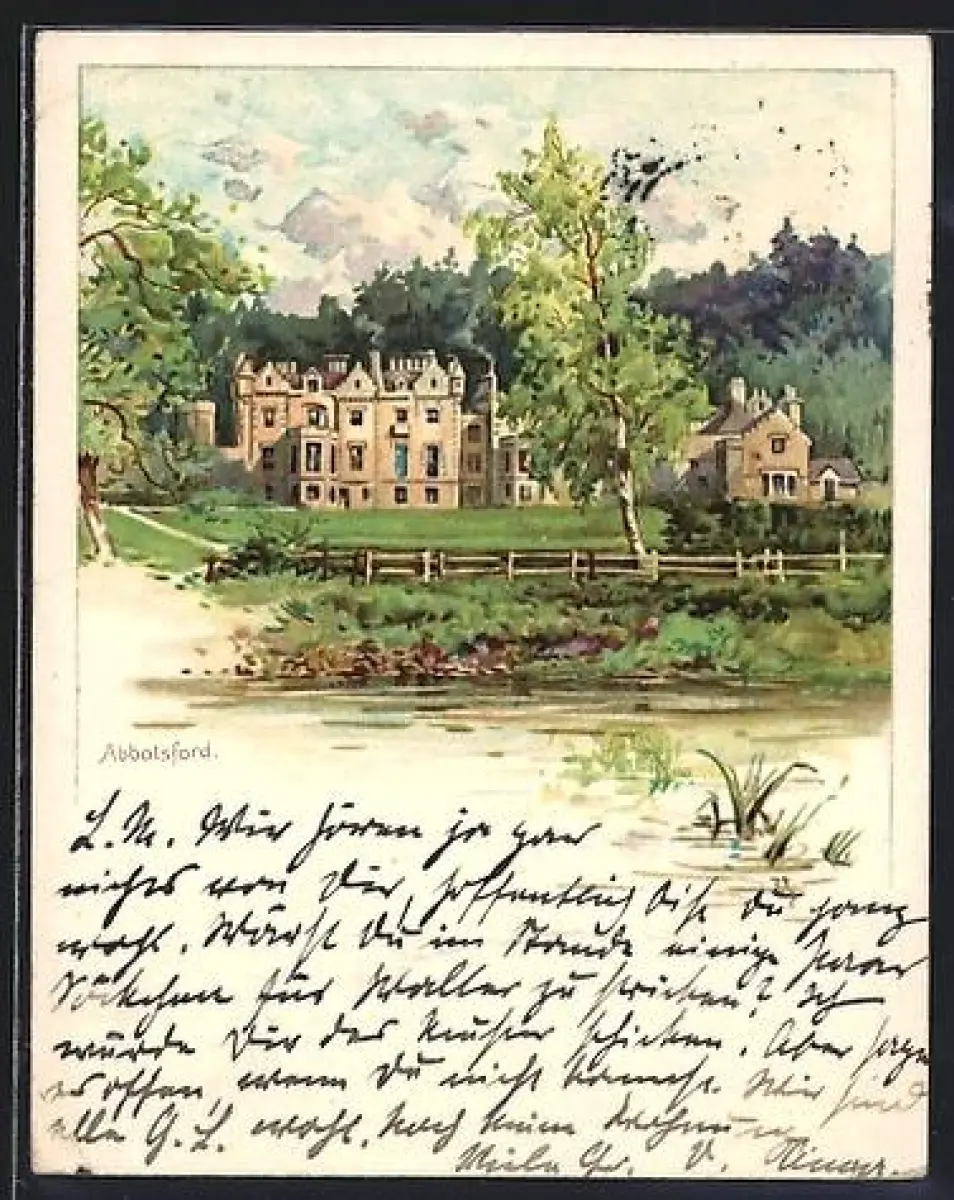 Abbotsford.
L. M. Wir hören ja gar
nichts von Dir, hoffentlich bist Du ganz
wohl. Wärst Du im Stande einige Paar
Söckchen für Walter zu stricken? Ich
würde Dir das schicken. Aber sage
es offen, wenn Du nicht kannst. Wir sind
alle G. L. wohl. Noch keine
Viele Gr. V.